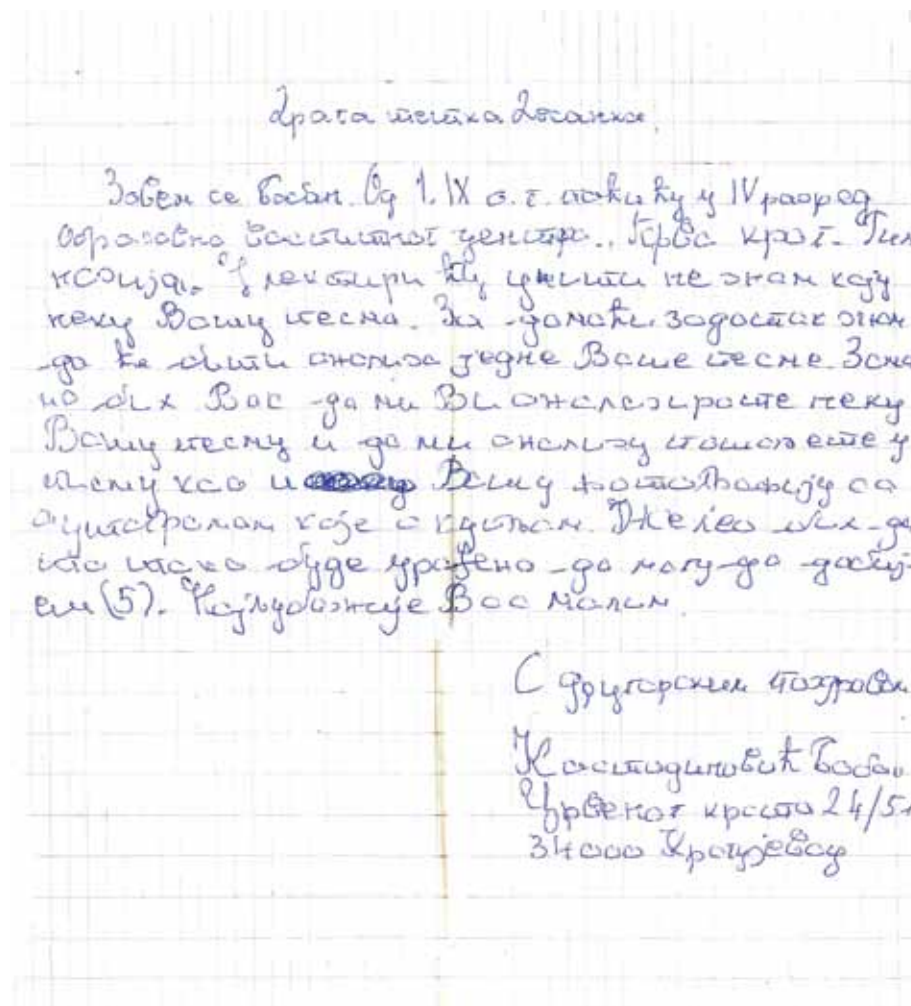 Драга тетка Десанка,
Зовем се Бобан. Од 1. IX о. г. поћи ћу у IV разред
образовно васпитног центра „Прва краг. Гим
назија. У лектири ћу учити не знам коју
неку Вашу песма. За домаћи задатак знам
да ће бити анализа једне Ваше песме. Замо
ио бих Вас да ми Ви анализирате неку
Вашу песму и да ми анализу пошаљете у
писму као и Вашу фотографију са
аутограмом које скупљам. Желео бих да
то тако буде урађено да могу да добиј
ем (5). Најљубазније Вас молим.
С другарским поздравом
Костадиновић Бобан
Црвеног крста 24/5
34000 Крагујевац